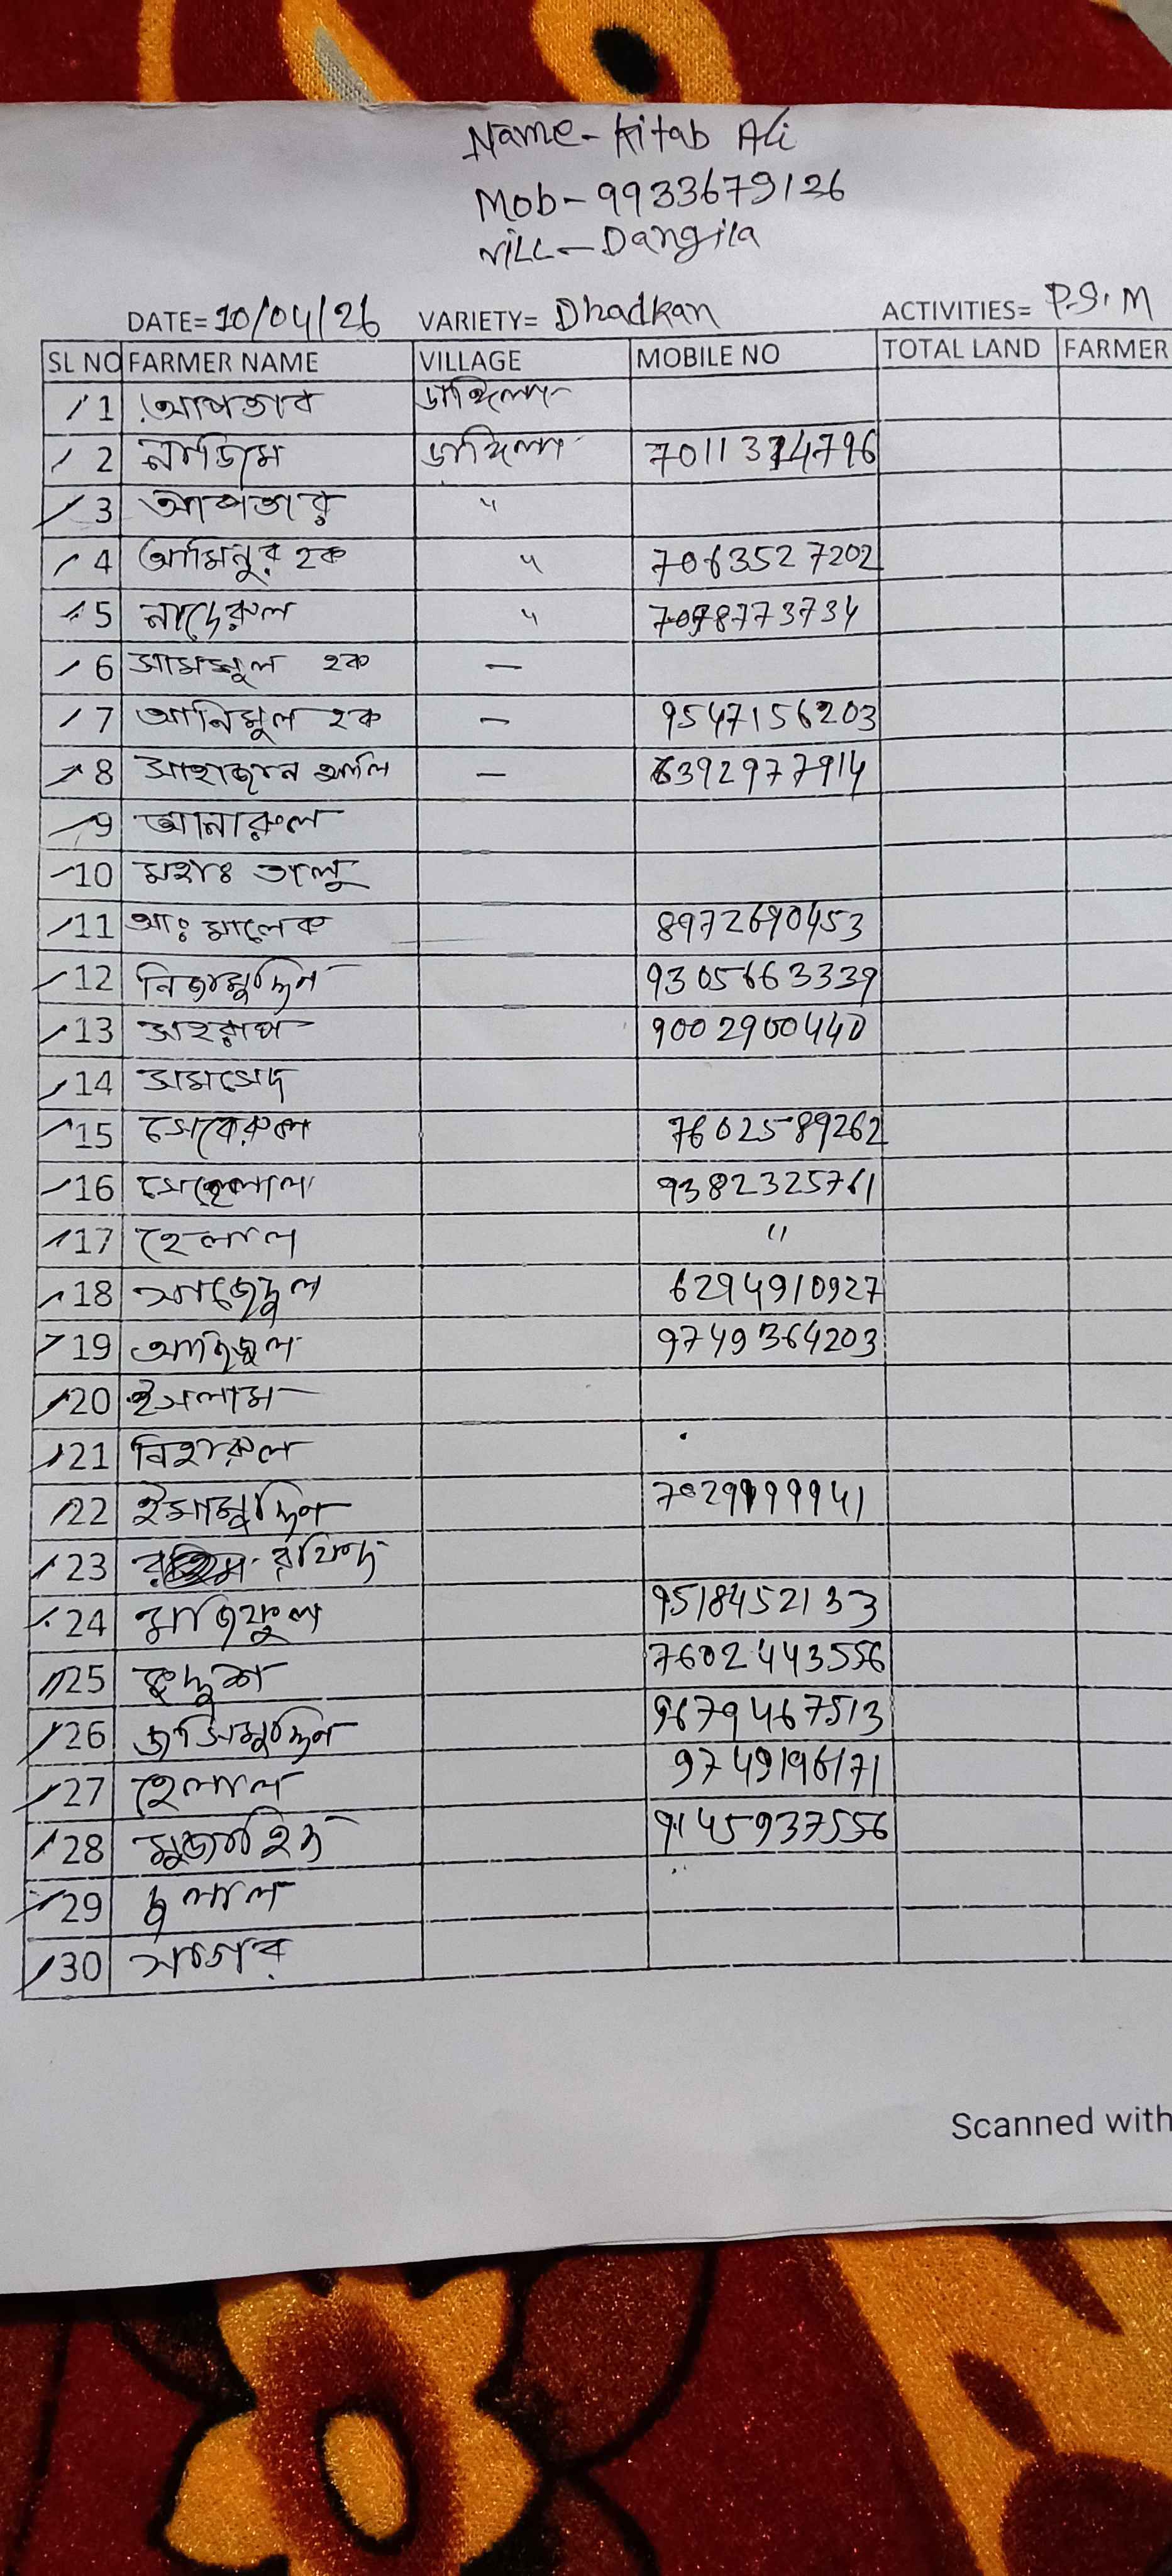 Name- Kitab Ali
Mob- 9933679126
vill- Dangila
DATE= 10/04/26 VARIETY= Dhadkan ACTIVITIES= P.S.M
SL NO FARMER NAME VILLAGE MOBILE NO TOTAL LAND FARMER
1 আপতাব ডাঙ্গিলা
2 নাজিম ডাঙ্গিলা
3 আপতার "
4 আমিনুর হক " 7063527202
5 নাদেরুল "
6 সামসুল হক —
7 আনিসুল হক — 9547156203
8 সাহাজান আলি — 6392977914
9 আনারুল
10 মহাঃ তালু
11 আঃ মালেক 8972690453
12 নিজামুদ্দিন 9305663339
13 সহরাপ 9002900440
14 সামসেদ
15 সেকেরুল 7602589262
16 9382325761
17 হেলাল "
18 সাজেদুল 6294910927
19 9749364203
20 ইসলাম
21 বিহারুল
22 ইমামুদ্দিন
23
24 মাজিফুল 9518452133
25 কুদ্দুশ 7602443556
26 জসিমুদ্দিন 9679467513
27 হেলাল 9749196171
28 মুজাহিদ 9145937556
29 দুলাল
30 সাগর
Scanned with